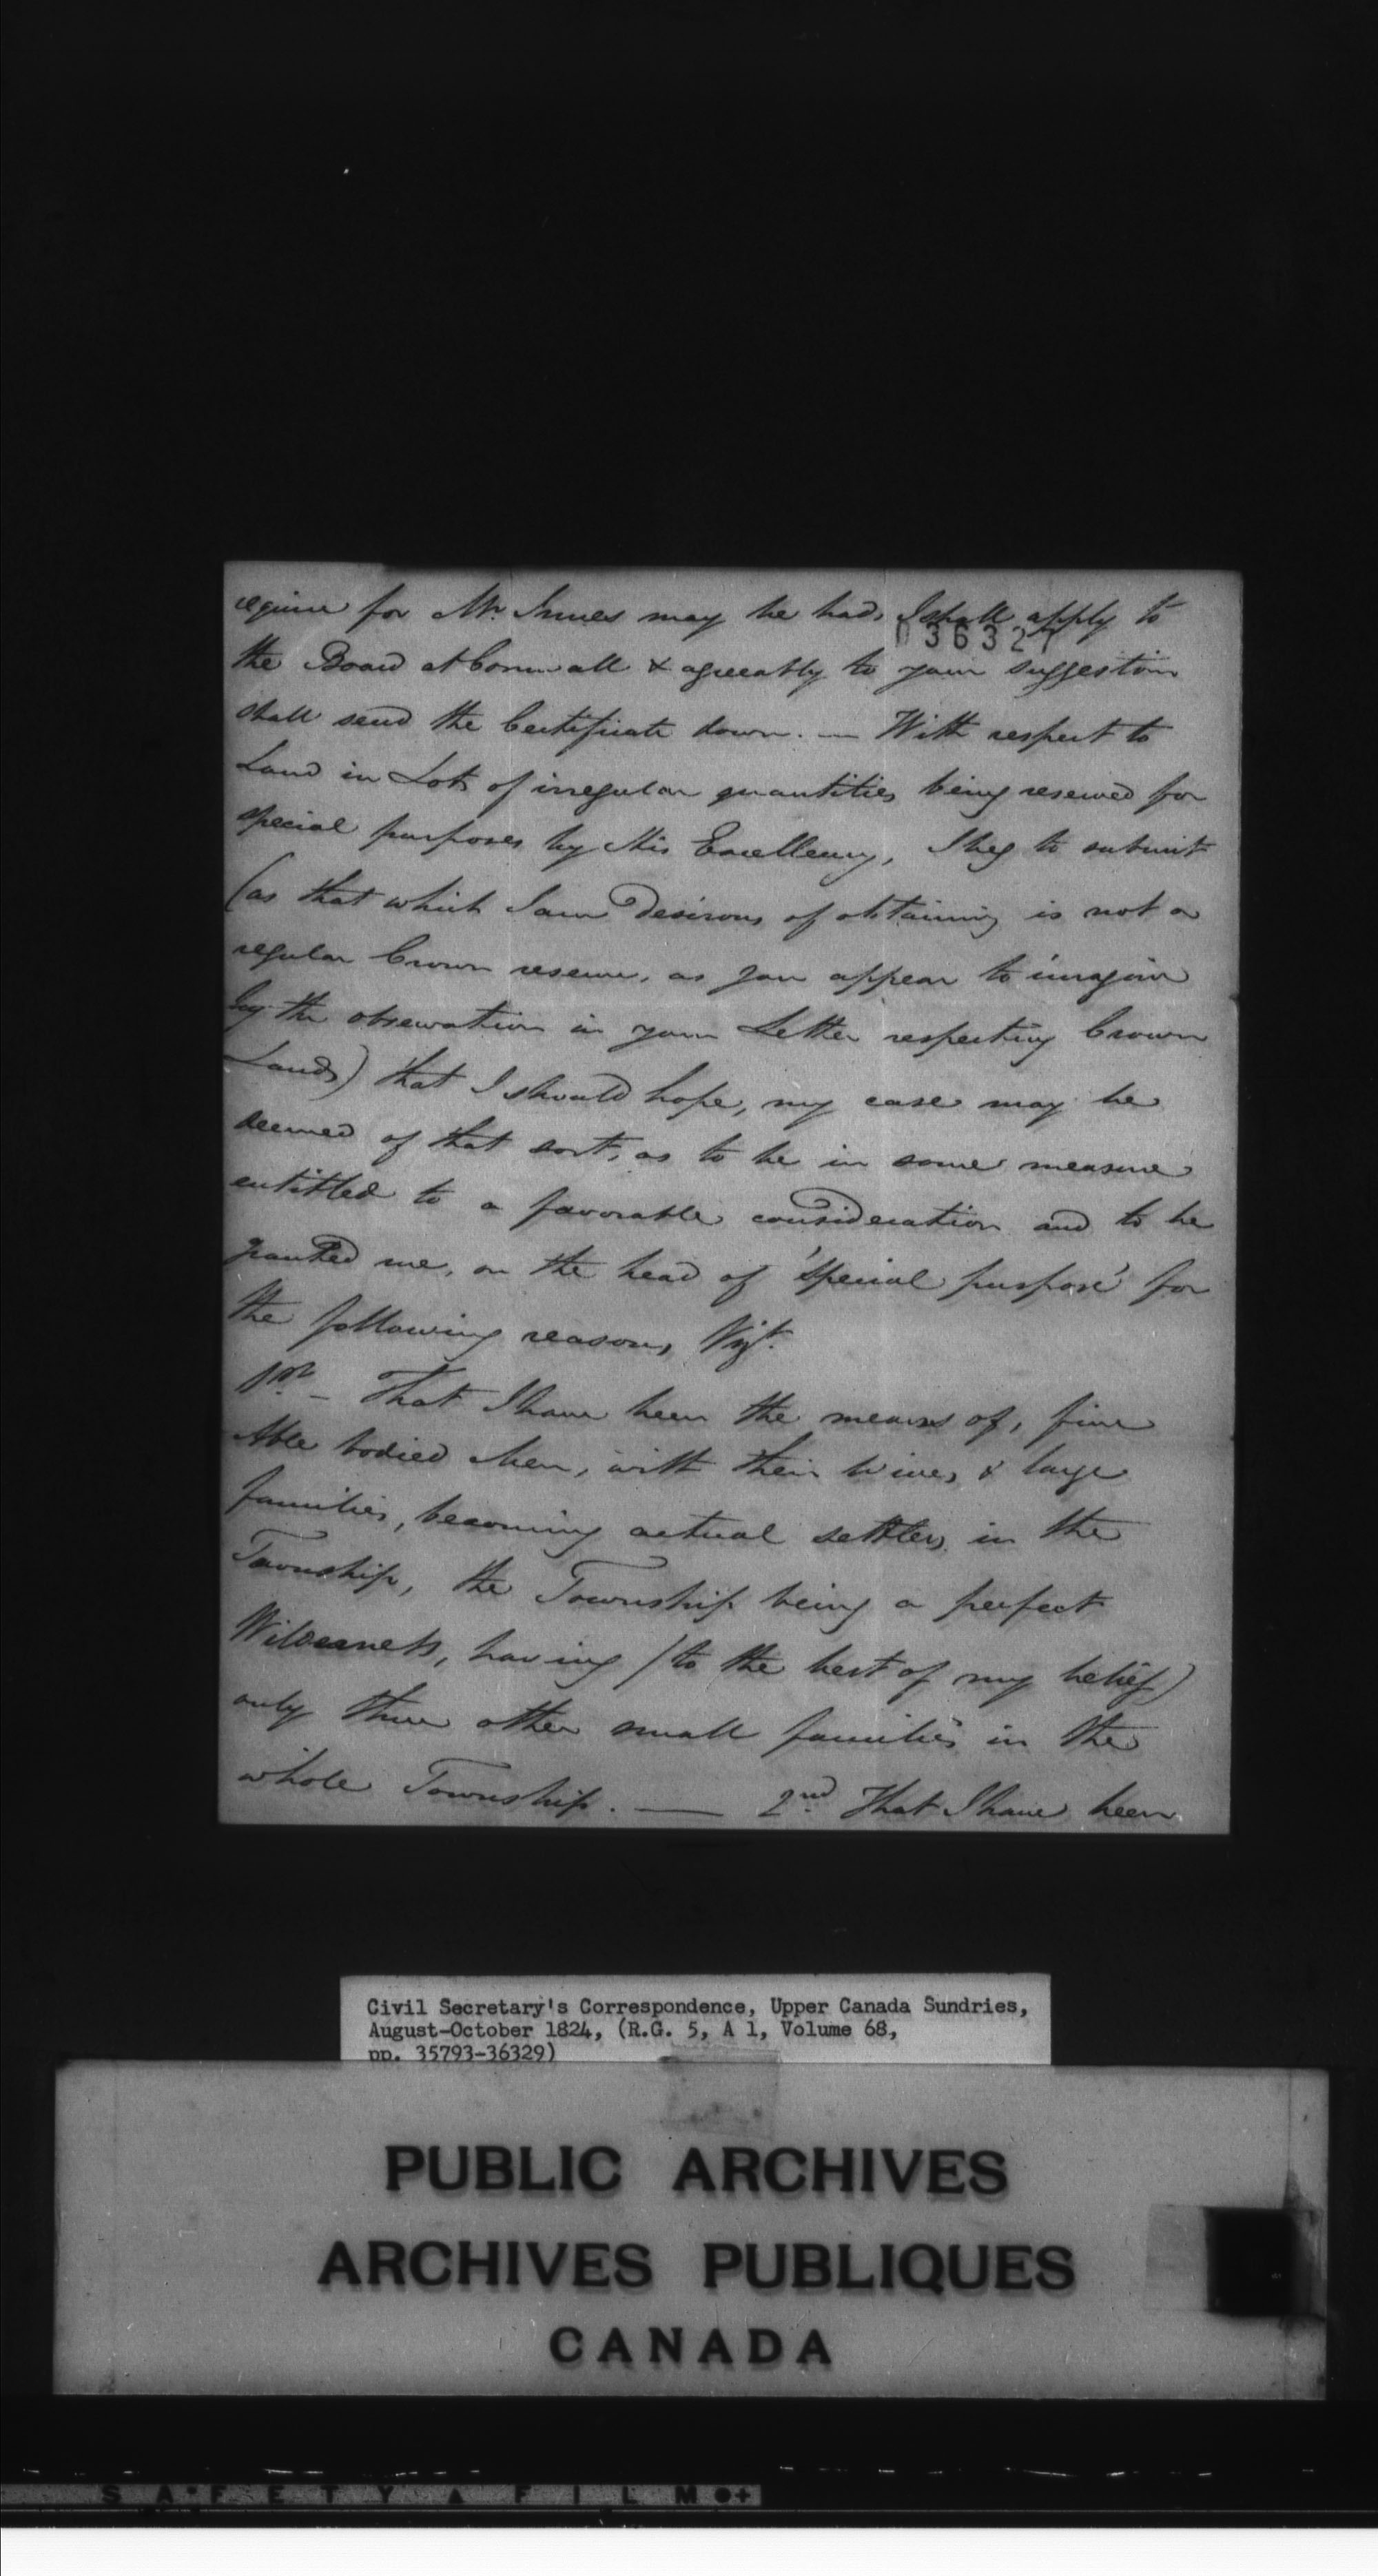 require for Mr. Innes may be had, I shall apply to
036327
the Board at Cornwall & agreeably to your suggestion
shall send the Certificate down. — With respect to
Land in Lots of irregular quantities being reserved for
special purposes by His Excellency, I beg to submit
(as that which I am Desirous of obtaining is not a
regular Crown reserve, as you appear to imagine
by the observation in your Letter respecting Crown
Lands) that I should hope, my case may be
deemed of that sort, as to be in some measure
entitled to a favorable consideration and to be
granted me, on the head of 'special purpose' for
the following reasons, Vizt.
1st. – That I have been the means of, five
Able bodied Men, with their Wives, & large
families, becoming actual settlers in the
Township, the Township being a perfect
Wilderness, having (to the best of my belief)
only three other small families in the
whole Township. — 2nd. That I have been
Civil Secretary's Correspondence, Upper Canada Sundries,
August-October 1824, (R.G. 5, A 1, Volume 68,
pp. 35793-36329)
PUBLIC ARCHIVES
ARCHIVES PUBLIQUES
CANADA
SAFETY FILM